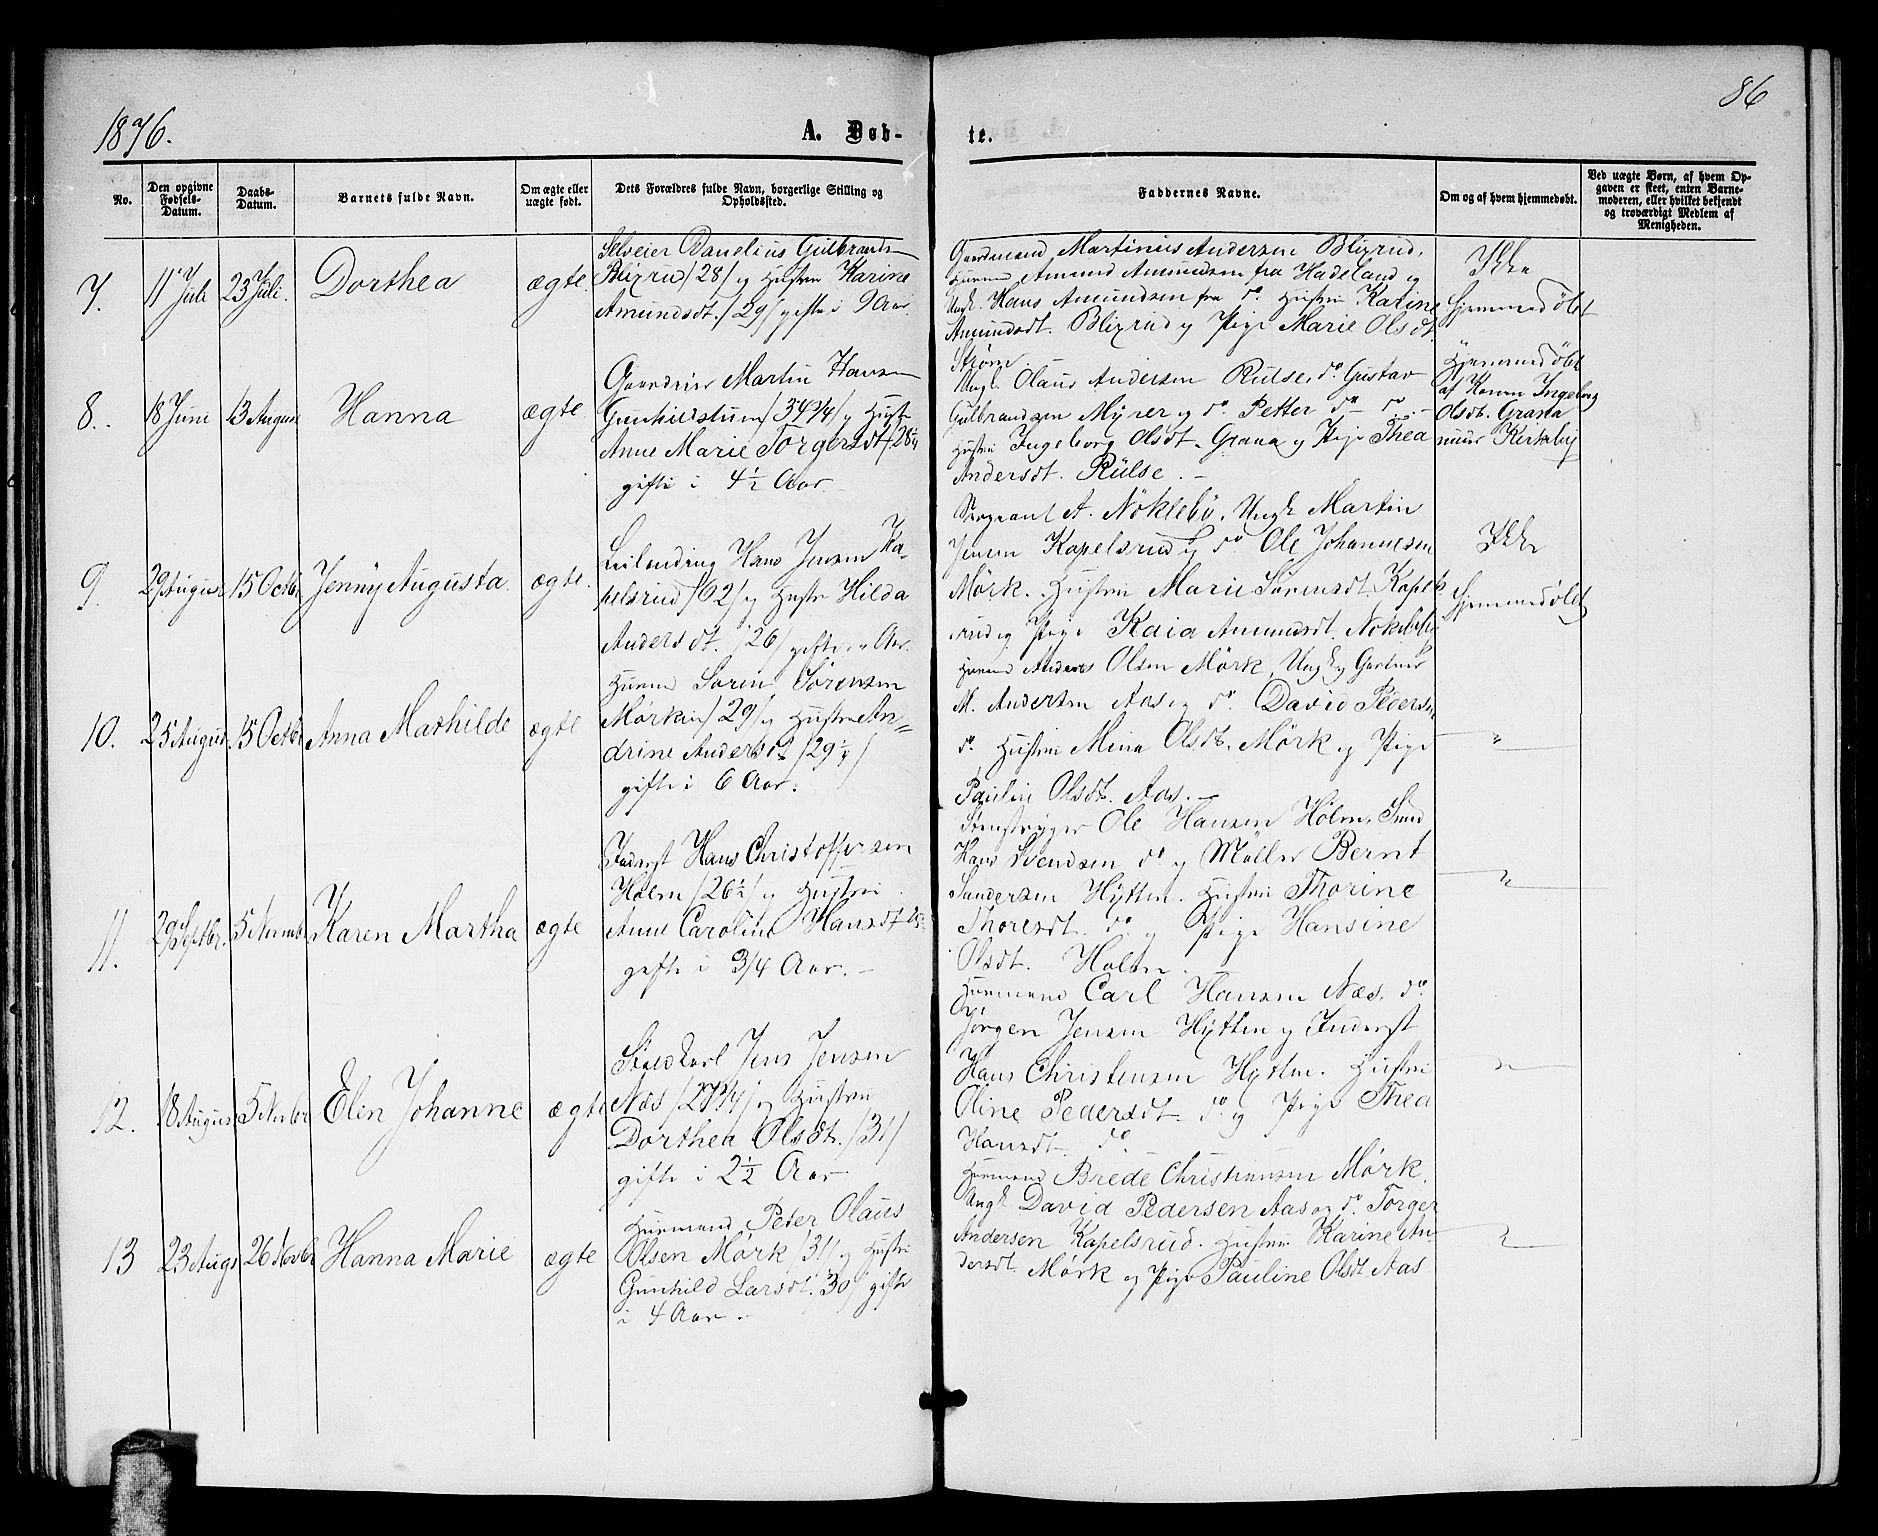 1876.
A. Døb-
te.
86
No.
Den opgivne Fødsels-Datum.
Daabs-Datum.
Barnets fulde Navn.
Om ægte eller uægte født.
Dets Forældres fulde Navn, borgerlige Stilling og Opholdssted.
Faddernes Navne.
Om og af hvem hjemmedøbt.
Ved uægte Børn, af hvem Op-
gaven er skeet, enten Barne-
moderen, eller hvilket bekjendt
og troværdigt Medlem af
Menigheden.
7.
11 Juli
23 Juli.
Dorthea
ægte.
Selveier Danelius Gulbrands
Blixrud /28/ og Hustru Karine
Amundsdt. /29/ gifte i 9 Aar.
Gaardmand Martinus Andersen Blixrud,
Huusmd Amund Amundsen fra Hadeland og
Ungk. Hans Amundsen fra do. Hustru Karine
Amundsdt. Blixrud og Pige Marie Olsdt.
Strøm
Ikke
hjemmedøbt
8.
18 Juni
13 August
Hanna
ægte.
Gaardeier Martin Hansen
Gunhildstuen /34 3/4/ og Hustru
Anne Marie Torgersdt /28 1/4
gifte i 4 1/2 Aar.
Ungk. Olaus Andersen Rülse, do. Gustav
Gulbrandsen Myrer og do. Petter do - do. -
Hustru Ingeborg Olsdt. Grana og Pige Thea
Andersdt. Rülse. -
Hjemmedøbt
af Konen Ingeborg
Olsdt. Grana
Kirkeby
9.
29 August
15 Octbr
Jenny Augusta.
ægte.
Leilending Hans Jensen Ka-
pelsrud /62/ og Hustru Hilda
Andersdt. /26/ gifte " Aar.
Sergeant A. Nöklebö, Ungk Martin
Jensen Kapelsrud og do. Ole Johannesen
Mørk. Hustru Marie Sørensdt. Kapels
rud og Pige Kaia Amundsdt. Nøkleby
Ikke
hjemmedøbt
10.
25 August
15 Octbr
Anna Mathilde
ægte
Huusmd Søren Sørensen
Mørkin /29/ og Hustru An=
drine Andersdt /29 1/4/
gifte i 6 Aar.
Huusmd Anders Olsen Mørk, Ungk og Gartner
M. Andersen Aas og do. David Pedersen
do. Hustru Mina Olsdt. Mørk og Pige
Pauline Olsdt. Aas. -
"
11.
29 Septbr.
5 Novemb
Karen Martha
ægte
Inderst Hans Christoffersen
Holm /26 1/2/ og Hustru
Anne Caroline Hansdt
gifte i 3/4 Aar. -
Ole Hansen Holm, Smed
Hans Svendsen do og Møller Bernt
Sandersen Hytten. Hustru Thorine
Thoresdt. do. og Pige Hansine
Olsdt. Holm.
"
12.
18 August
5 Novbr
Elen Johanne
ægte
Staldkarl Jens Jensen
Næs /27 3/4/ og Hustru
Dorthea Olsdt. /31/
gifte i 2 1/2 Aar
Huusmand Carl Hansen Næs, do.
Jørgen Jensen Hytten og Inderst
Hans Christensen Hytten. Hustru
Oline Pedersdt. do. og Pige Thea
Hansdt. do.
"
13
23 Augs
26 Novbr
Hanna Marie
ægte
Huusmand Peter Olaus
Olsen Mørk /31/ og Hustru
Gunhild Larsdt. /30/ gifte
i 4 Aar. -
Huusmand Brede Christiansen Mørk.
Ungk David Pedersen Aas og do. Torger
Andersen Kapelsrud. Hustru Karine An-
dersdt. Mørk og Pige Pauline Olsdt Aas
"